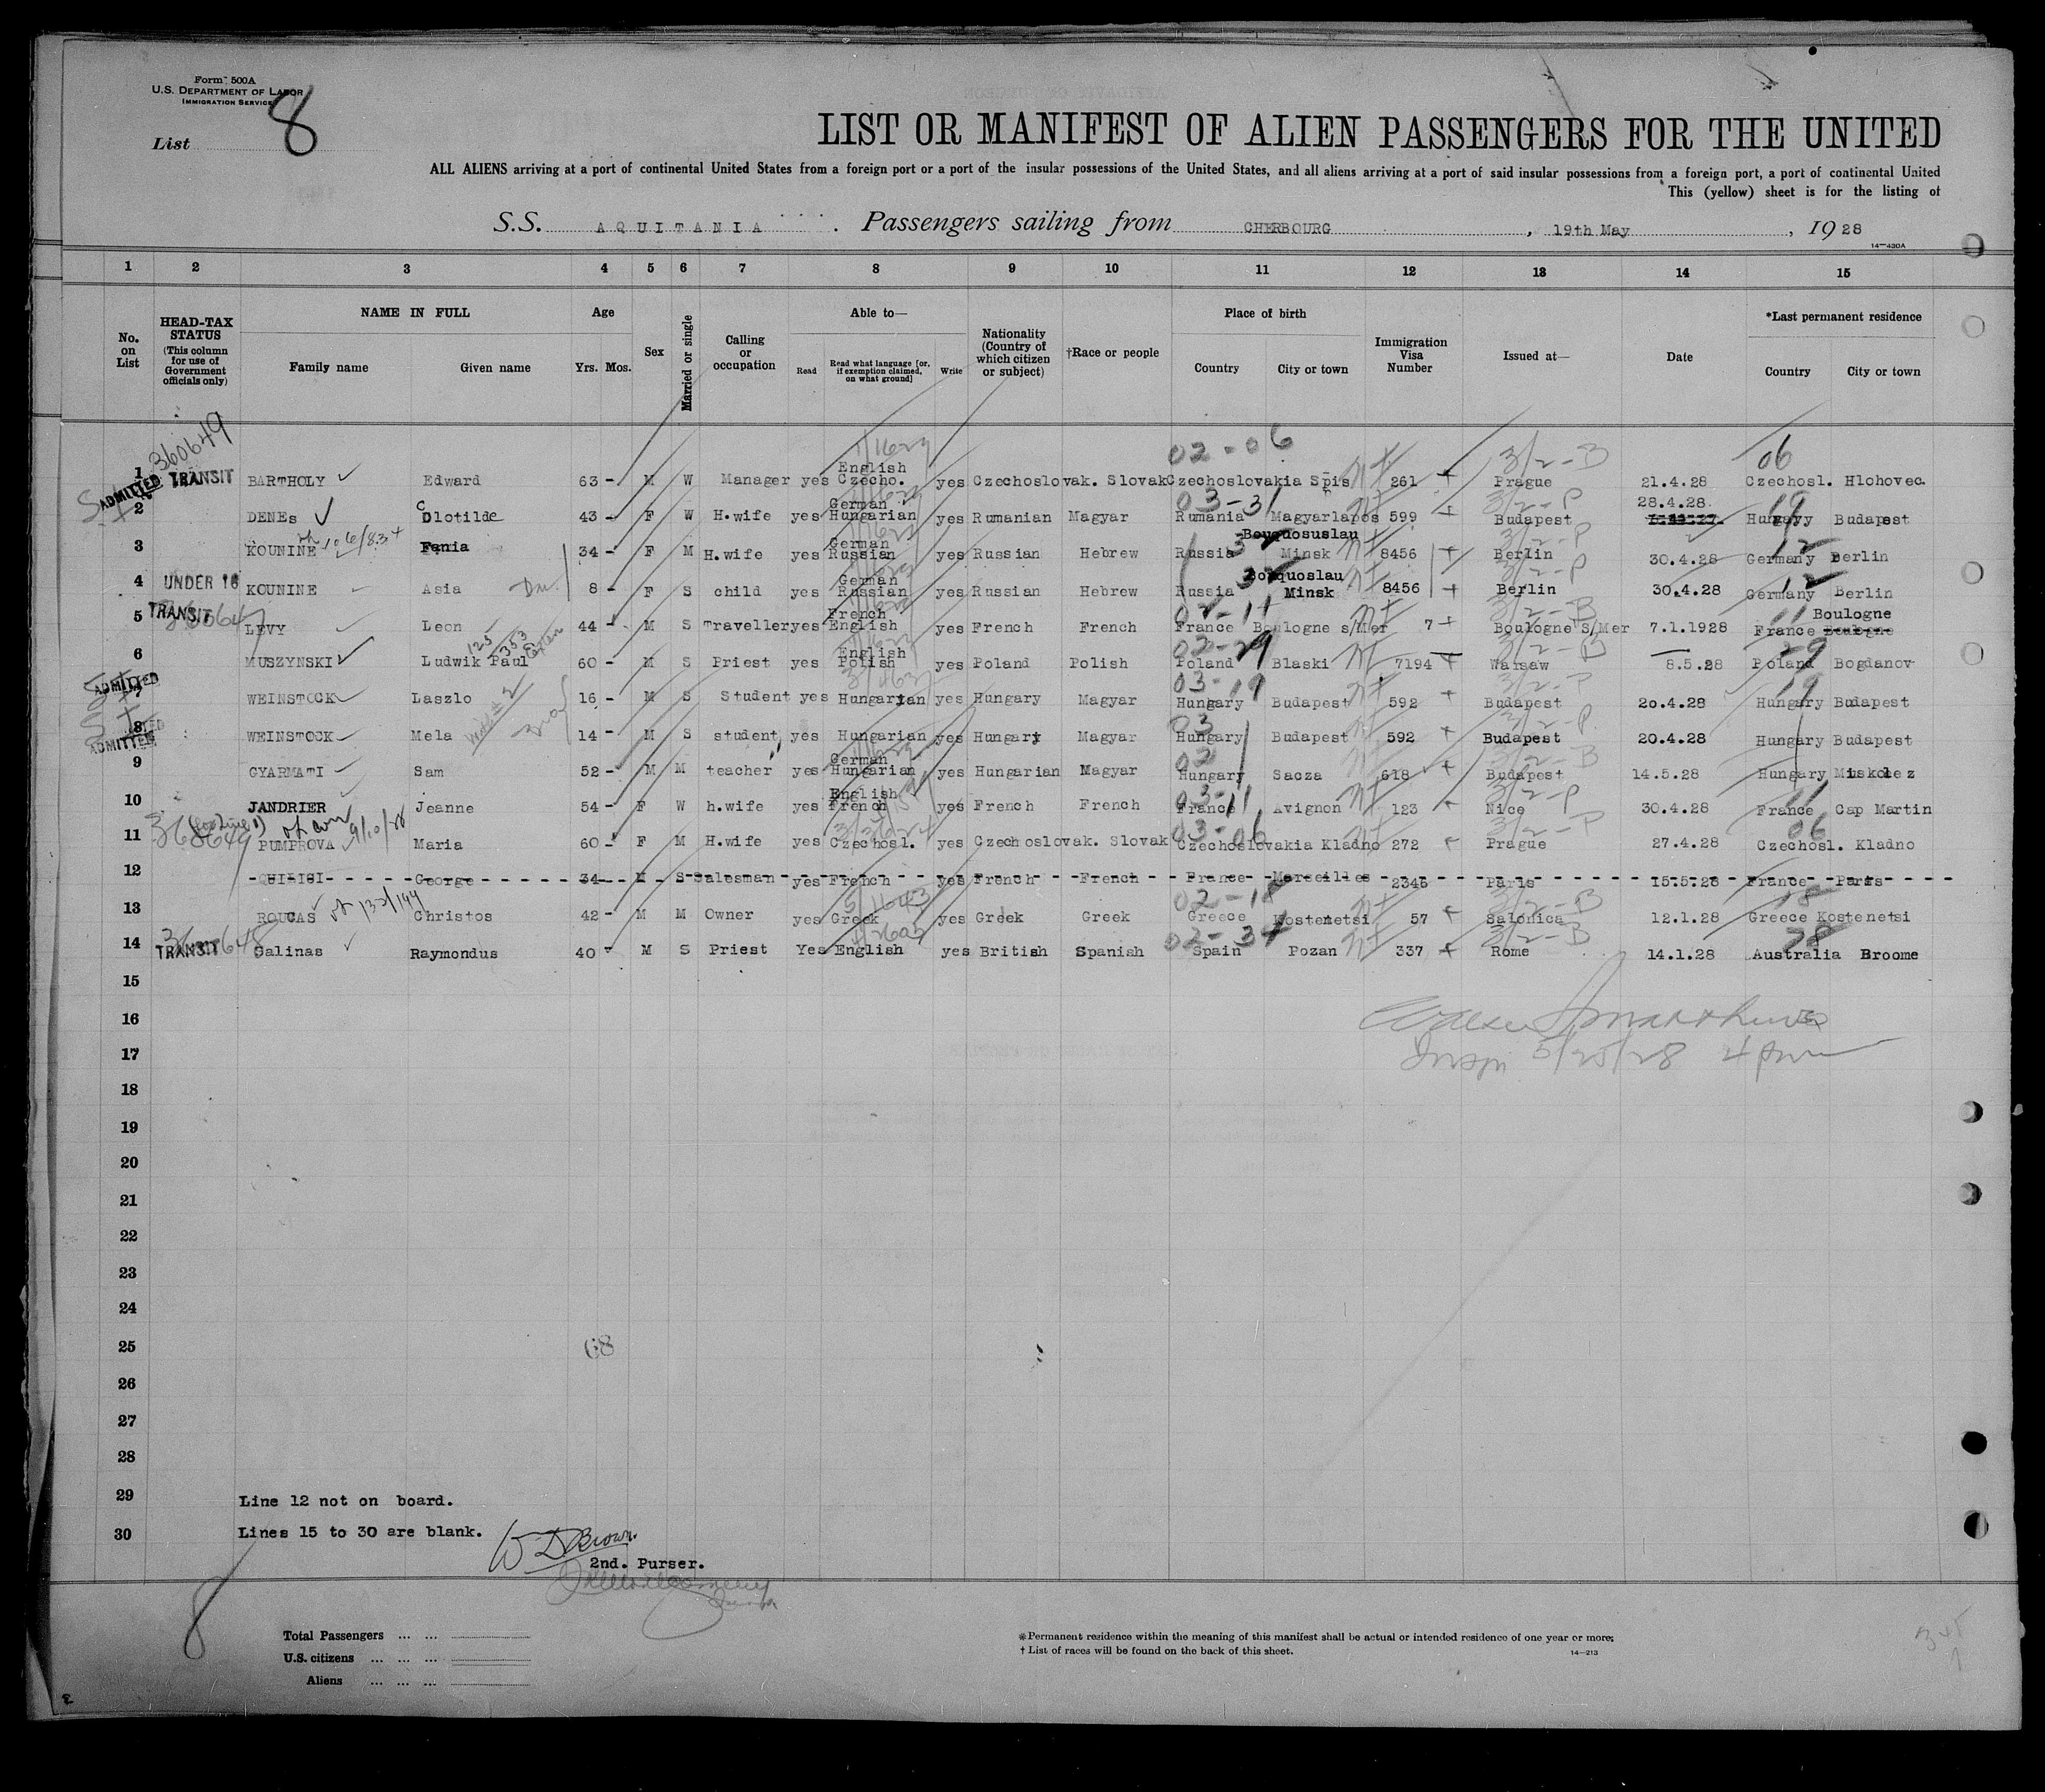 Form 500A
U.S. DEPARTMENT OF LABOR
IMMIGRATION SERVICE
List 8
LIST OR MANIFEST OF ALIEN PASSENGERS FOR THE UNITED
ALL ALIENS arriving at a port of continental United States from a foreign port or a port of the insular possessions of the United States, and all aliens arriving at a port of said insular possessions from a foreign port, a port of continental United
This (yellow) sheet is for the listing of
S.S. AQUITANIA Passengers sailing from CHERBOURG, 19th May, 1928
14—430A
1 2 3 4 5 6 7 8 9 10 11 12 13 14 15
No. on List
HEAD-TAX STATUS (This column for use of Government officials only)
NAME IN FULL
Family name Given name
Age
Yrs. Mos.
Sex
Married or single
Calling or occupation
Able to—
Read Read what language [or, if exemption claimed, on what ground] Write
Nationality (Country of which citizen or subject)
†Race or people
Place of birth
Country City or town
Immigration Visa Number
Issued at—
Date
*Last permanent residence
Country City or town
360649
02-06 3/2-B 06
1 ADMITTED TRANSIT BARTHOLY Edward 63 M W Manager yes English Czecho. yes Czechoslovak. Slovak Czechoslovakia Spis 261 Prague 21.4.28 Czechosl. Hlohovec
03-31 3/2-P 19
2 DENEs Clotilde 43 F W H.wife yes German Hungarian yes Rumanian Magyar Rumania Magyarlapos 599 Budapest 28.4.28. Hungary Budapest
3 KOUNINE Fania 34 F M H.wife yes German Russian yes Russian Hebrew Russia Bouquosuslau Minsk 8456 Berlin 30.4.28 Germany Berlin
4 UNDER 16 KOUNINE Asia 8 F S child yes German Russian yes Russian Hebrew Russia Bouquoslau Minsk 8456 Berlin 30.4.28 Germany Berlin
5 TRANSIT LEVY Leon 44 M S Traveller yes French English yes French French France Boulogne s/Mer 7 Boulogne S/Mer 7.1.1928 France Boulogne
02-29 3/2-B 29
6 MUSZYNSKI Ludwik Paul 60 M S Priest yes English Polish yes Poland Polish Poland Blaski 7194 Warsaw 8.5.28 Poland Bogdanov
03-19 3/2-P 19
7 ADMITTED WEINSTOCK Laszlo 16 M S Student yes Hungarian yes Hungary Magyar Hungary Budapest 592 Budapest 20.4.28 Hungary Budapest
03 3/2-P
8 ADMITTED WEINSTOCK Mela 14 M S student yes Hungarian yes Hungary Magyar Hungary Budapest 592 Budapest 20.4.28 Hungary Budapest
02 3/2-B
9 GYARMATI Sam 52 M M teacher yes German Hungarian yes Hungarian Magyar Hungary Sacza 618 Budapest 14.5.28 Hungary Miskolcz
03-11 3/2-P 11
10 JANDRIER Jeanne 54 F W h.wife yes English French yes French French France Avignon 123 Nice 30.4.28 France Cap Martin
03-06 3/2-P 06
11 PUMPROVA Maria 60 F M H.wife yes Czechosl. yes Czechoslovak. Slovak Czechoslovakia Kladno 272 Prague 27.4.28 Czechosl. Kladno
12 QUILICI George 34 M S Salesman yes French yes French French France Marseilles 2346 Paris 15.5.28 France Paris
02-18 3/2-B 18
13 ROUCAS Christos 42 M M Owner yes Greek yes Greek Greek Greece Kostenetsi 57 Salonica 12.1.28 Greece Kostenetsi
02-34 3/2-B 28
14 TRANSIT Salinas Raymondus 40 M S Priest Yes English yes British Spanish Spain Pozan 337 Rome 14.1.28 Australia Broome
15
16
17 Insp 5/25/28 4 pm
18
19
20
21
22
23
24
25 68
26
27
28
29 Line 12 not on board.
30 Lines 15 to 30 are blank.
W D Brown.
2nd. Purser.
8
Total Passengers
U.S. citizens
Aliens
*Permanent residence within the meaning of this manifest shall be actual or intended residence of one year or more.
† List of races will be found on the back of this sheet.
14—213